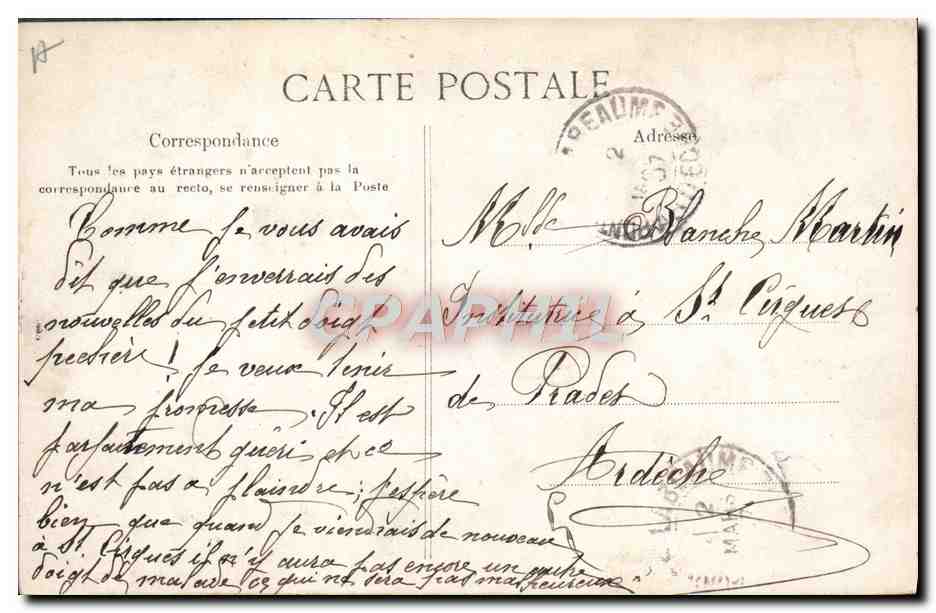 CARTE POSTALE
Correspondance
Tous les pays étrangers n'acceptent pas la
correspondance au recto, se renseigner à la Poste
Comme je vous avais
dit que j'enverrais des
nouvelles du petit doigt
! je veux tenir
ma promesse. Il est
parfaitement guéri et ce
n'est pas à plaindre; j'espère
bien que quand je viendrais de nouveau
à St Cirgues il n'y aura pas encore un autre
doigt de malade ce qui ne sera pas malheureux
Adresse
Mlle Blanche Martin
Institutrice à St Cirgues
de Prades
Ardèche
LARGEAUME
2
07
MARS
CPAPHIL